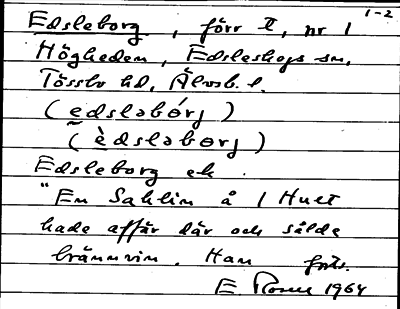 1-2
Edsleborg, förr tl, nr 1
Högheden, Edsleskogs sn,
Tössbo hd, Älvsb. l.
(edsləbórj)
(èdsləborj)
Edsleborg ek.
"En Sahlin å 1 Huet
hade affär där och sålde
brännvin. Han forts.
E. 1964